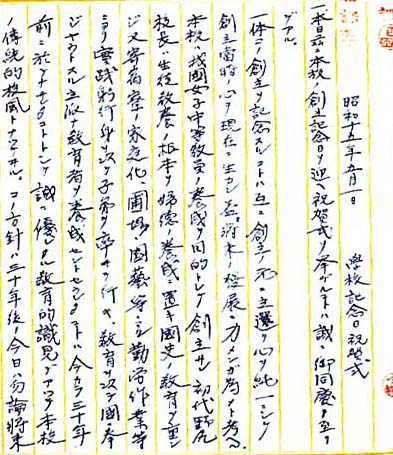 昭和十五年五月一日　学校記念日祝賀式
一、本日茲ニ本校ノ創立記念日ヲ迎ヘ祝賀式ヲ挙グルコトハ誠ニ御同慶ノ至リ
デアル。
一体ニ創立ヲ記念スルコトハ互ニ創立ノ元ニ立還リ心ヲ純一ニシテ
創立当時ノ心ヲ現在ニ生シ益将来ノ発展ニ力メンガ為メト考ヘ
本校ハ我国女子中等教員ノ養成ヲ目的トシテ創立サレ初代野尻
校長ハ生徒教養ノ根本ヲ婦徳ノ養成ニ置キ国史ノ教育ヲ重ン
ジ又寄宿寮ノ家庭化圃場ノ園芸等ニヨル勤労作業等
ニヨリ実践躬行身ヲ以テ子弟ヲ率ヰテ行キ、教育ヲ以テ国ニ奉
ジヤウトスル立派ナ教育者ヲ養成セントセラレタコトハ今カラ三十年
前ニ於テナサレタコトトシテ誠ニ優レタル教育的識見デアツテ本校
ノ伝統的校風トナツタ。コノ方針ハ三十年後ノ今日ハ勿論将来